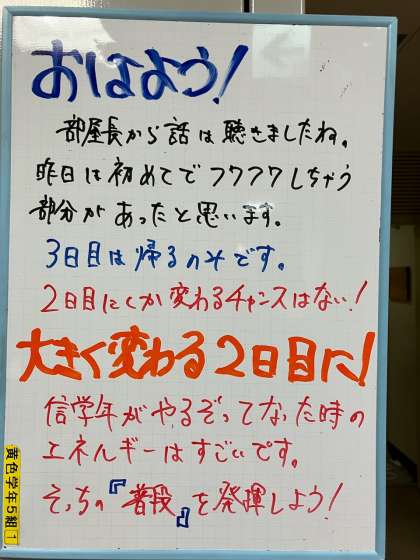 おはよう!
部屋長から話は聴きましたね。
昨日は初めてでフワフワしちゃう
部分があったと思います。
3日目は帰るのみです。
2日目にしか変わるチャンスはない!
大きく変わる2日目に!
信学年がやるぞってなった時の
エネルギーはすごいです。
そっちの『普段』を発揮しよう!
黄色学年5組1